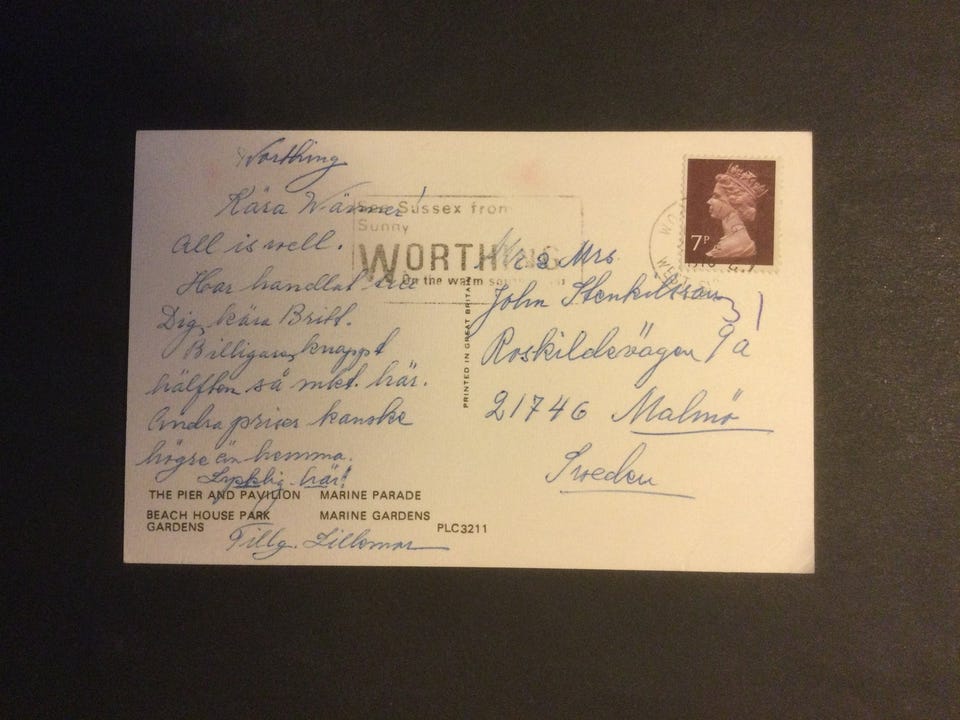 Worthing
Kära Vänner!
All is well.
Har handlat till
Dig, kära Britt.
Billigare, knappt
hälften så mkt. här.
Andra priser kanske
högre än hemma.
Lycklig här!
Tillg. Lillemor
See Sussex from
Sunny
WORTHING
On the warm
PRINTED IN GREAT BRITAIN
7P
Mr & Mrs
John Stenkilsson
Roskildevägen 9a
21746 Malmö
Sweden
THE PIER AND PAVILION MARINE PARADE
BEACH HOUSE PARK GARDENS MARINE GARDENS
PLC3211